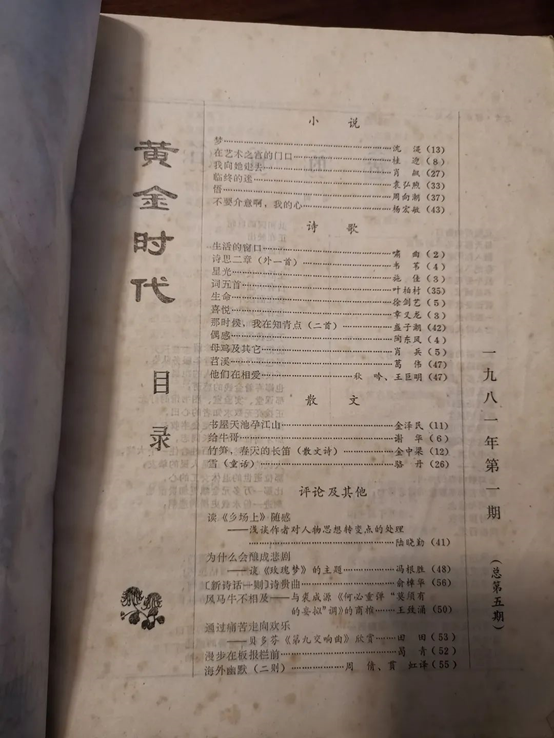 黄金时代
目录
小说
梦……沈湜(13)
在艺术之宫的门口……桂迎(8)
我向她追去……肖飙(27)
临终的迷……袁弘煦(33)
悟……周向潮(37)
不要介意啊,我的心……杨宏敏(43)
诗歌
生活的窗口……啸曲(2)
诗思二章(外一首)……韦苇(4)
星光……施佳(3)
词五首……叶柏村(35)
生命……徐剑艺(5)
喜悦……章文龙(3)
那时候,我在知青点(二首)……盛子潮(42)
偶感……陶东风(4)
母鸡及其它……肖兵(5)
苕溪……葛伟(47)
他们在相爱……秋吟、王臣明(47)
散文
书屋天池孕江山……金泽民(11)
给牛哥……谢华(6)
竹笋,春天的长笛(散文诗)……金中梁(12)
雪(童话)……骆丹(26)
评论及其他
读《乡场上》随感
——浅谈作者对人物思想转变点的处理
……陆晓勤(41)
为什么会酿成悲剧
——谈《玫瑰梦》的主题……冯根胜(49)
〔新诗话一则〕诗贵曲……俞樟华(56)
风马牛不相及——与裘成源《何必重弹"莫须有
的妄拟"调》的商榷……王玫涌(50)
通过痛苦走向欢乐
——贝多芬《第九交响曲》欣赏……田田(53)
漫步在板报栏前……蒿青(52)
海外幽默(二则)……周倩、贾虹译(55)
一九八一年第一期
(总第五期)